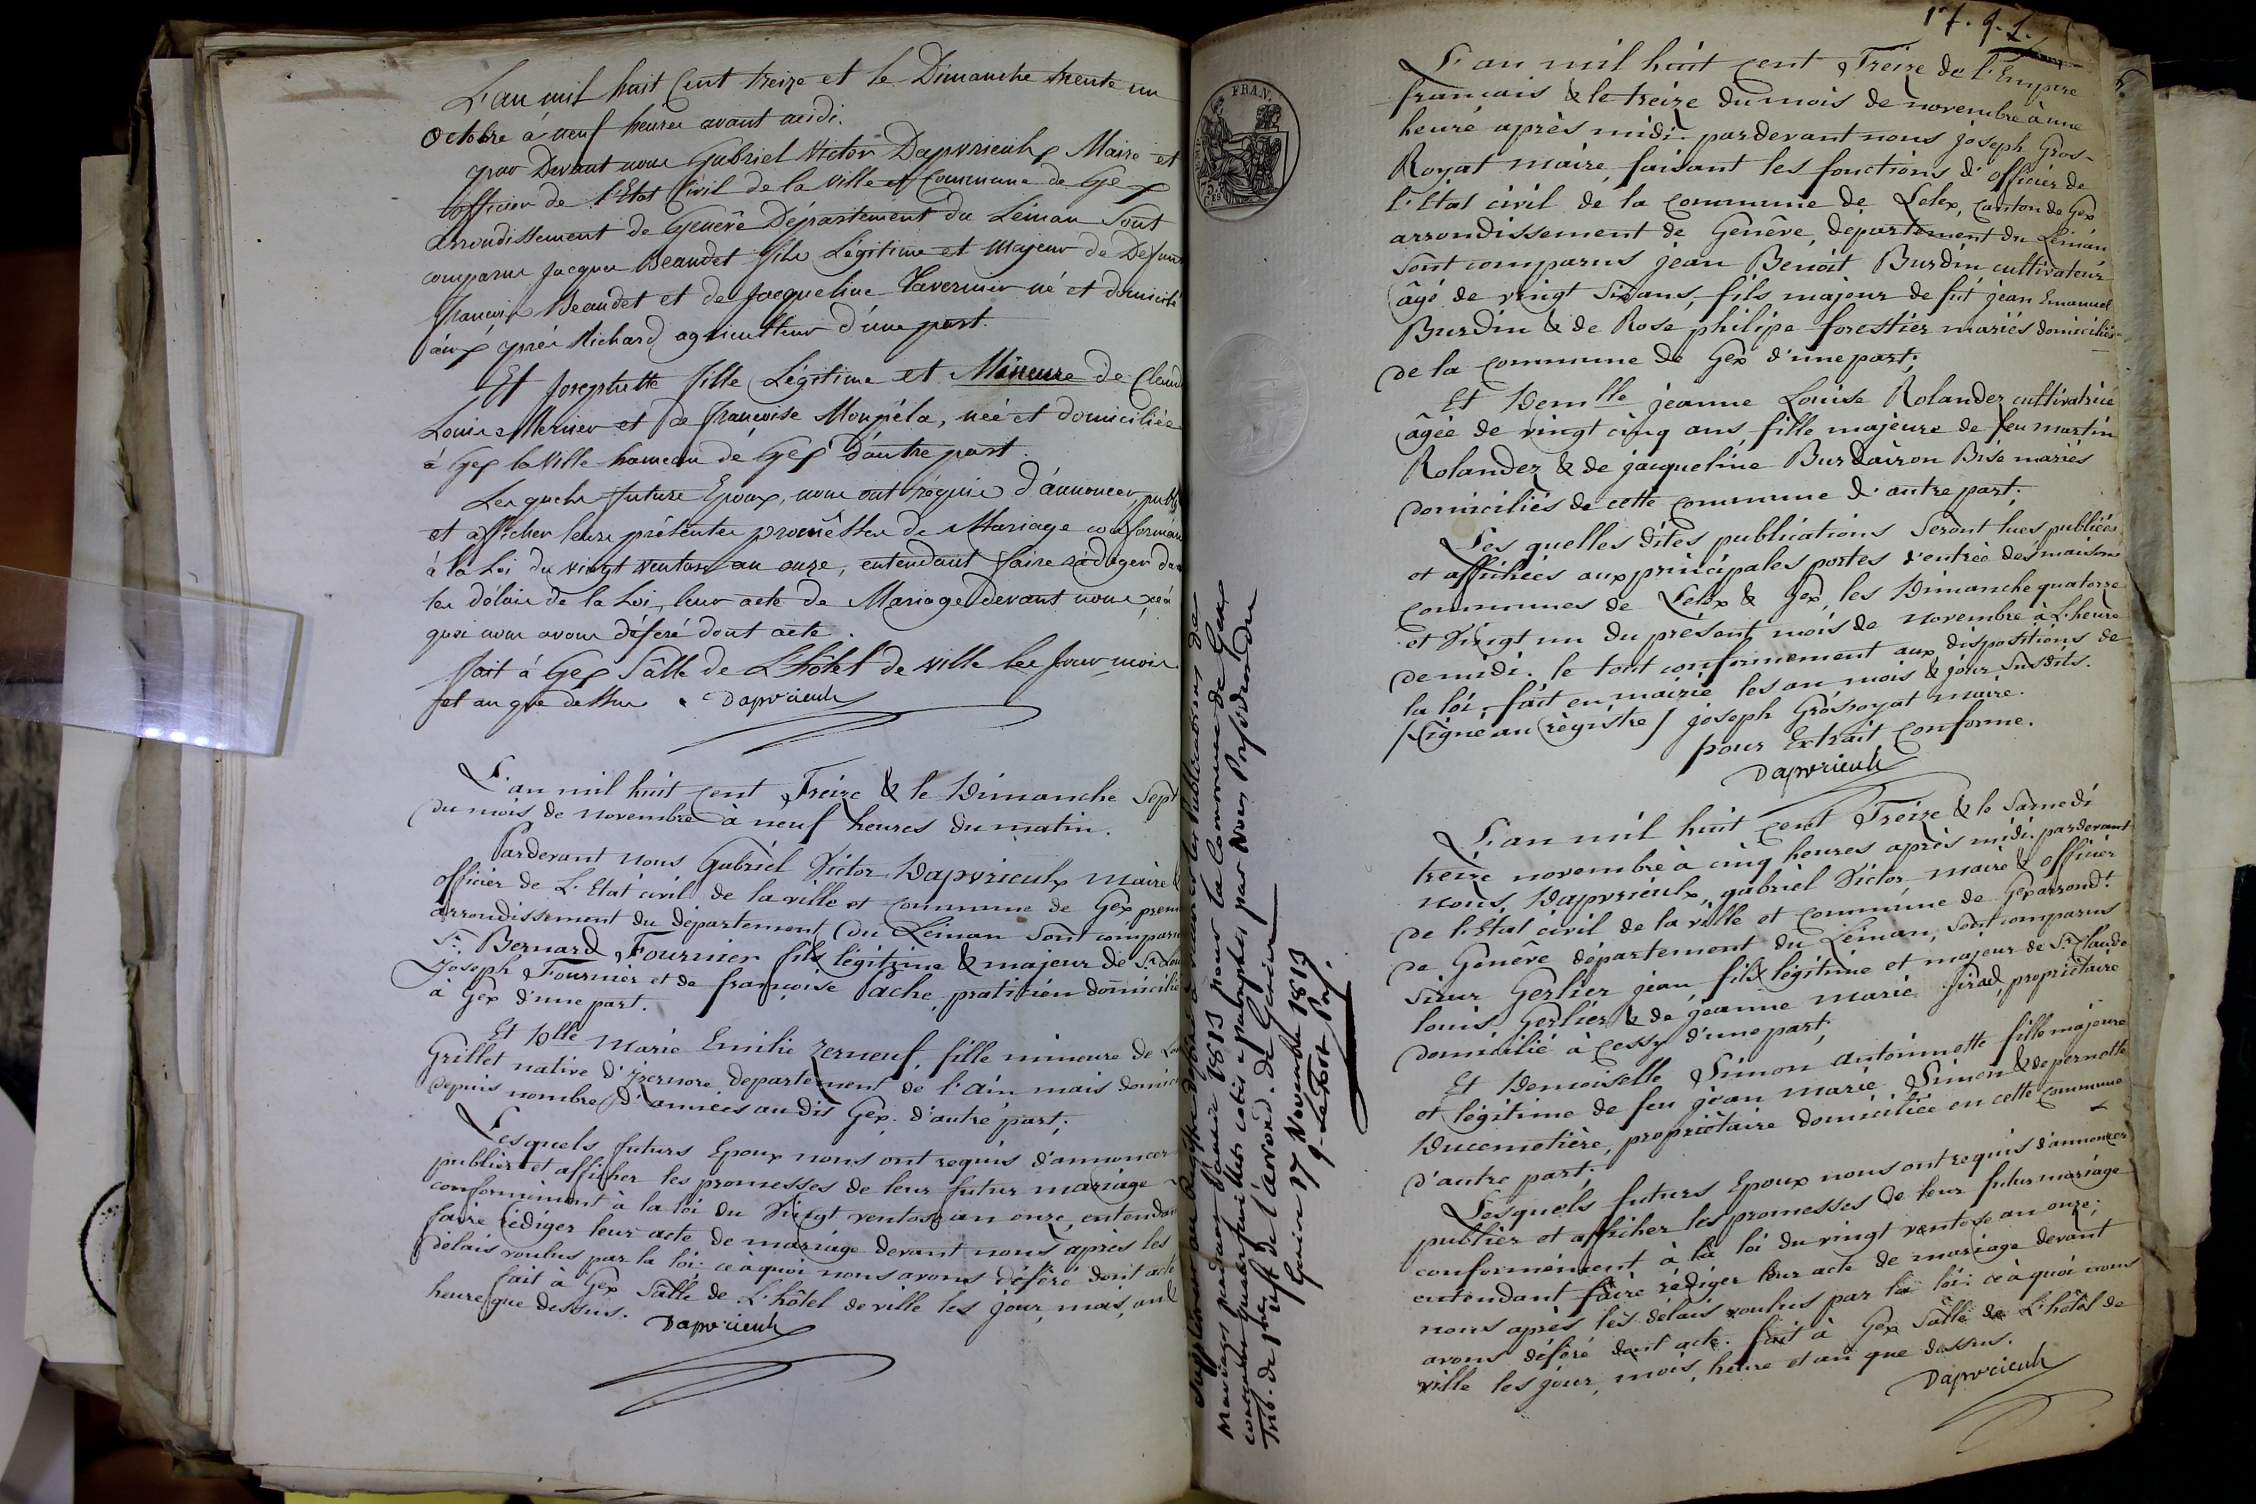 L'an mil huit Cent treize et le Dimanche trente un
Octobre à neuf heures avant midi.
par Devant nous Gabriel Victor Dapvrieulx Maire et
officier de l'Etat Civil de la Ville et Commune de Gex
arrondissement de Genêve Département du Léman Sont
comparus Jacques Beaudet fils Légitime et Majeur de Defun
François Beaudet et de Jacqueline Tavernier né et domicilié
aux près Richard agriculteur d'une part.
Et Josephtte fille Légitime et Mineure de Claud
Louis Mernier et de françoise Monpéla, née et domiciliée
à Gex la Ville hameau de Gex D'autre part.
Lesquels futurs Epoux, nous ont réquis d'annoncer, publi
et afficher leurs présentes promêsses de Mariage conformém
à la Loi du vingt ventose an onze, entendant faire rédiger da
les délais de la Loi, leur acte de Mariage devant nous, ce à
quoi nous avons déféré dont acte.
fait à Gex Sâlle de L'hôtel de ville les jour mois
et an que dessus. Dapvrieulx
L'an mil huit cent Treize & le Dimanche Sept
du mois de Novembre à neuf heures du matin.
Pardevant Nous Gabriel Victor Dapvrieulx Maire &
officier de L'Etat civil de la ville et commune de Gex prem
arrondissement du département du Léman Sont comparu
Sr. Bernard Fournier fils légitime & majeur de Sr. Lou
Joseph Fournier et de françoise Pache, praticien domicilié
à Gex d'une part.
Et Dlle Marie Emilie Zerneuf, fille mineure de Lou
Grillet native d'Izernore, departement de l'Ain mais domic
depuis nombre d'années au dit Gex. d'autre part;
Lesquels futurs Epoux nous ont requis d'annoncer
publier et afficher les promesses de leur futur mariage
conformément à la loi du Vingt ventose an onze, entendan
faire rédiger leur acte de mariage devant nous après les
délais voulus par la loi: ce à quoi nous avons déféré dont act
fait à Gex Sâlle de L'hôtel de ville les jour, mois, an &
heure que dessus. Dapvrieulx
Supplément au Registre destiné à recevoir les Publications de
Mariages pendant l'année 1813 pour la Commune de Gex
contenant quatre feuillets cotés & paraphés par Nous Président du
Trib. de 1re inst. de l'arrond. de Genève
Genève 17 Novembre 1813
J. Le Fort Pst.
17. 9. 1.
FRAN.
75.
CES
L'an mil huit cent Treize de l'Empire
francais & le treize du mois de novembre à une
heure après midi. pardevant nous Joseph Gros-
Royat Maire, faisant les fonctions d'officier de
l'Etat civil de la commune de Lelex, canton de Gex
arrondissement de Genêve, département du Léman
Sont comparus jean Benoit Burdin cultivateur
âgé de vingt Six ans, fils majeur de fût jean Emanuel
Burdin & de Rose philipe forestier mariés domiciliés
de la commune de Gex d'une part;
Et Demlle jeanne Louise Rolandez cultivatrice
âgée de vingt cinq ans, fille majeure de feu martin
Rolandez & de jacqueline Burdairon Bisé mariés
domiciliés de cette commune d'autre part;
Les quelles dites publications Seront lues publiées
et affichées aux principales portes d'entrée des maisons
communes de Lelex & Gex, les Dimanche quatorze
et Vingt un du présent mois de Novembre à L'heure
de midi. le tout conformément aux dispositions de
la loi. fait en mairie les an mois & jour Susdits.
/Signé au règistre/ joseph Grosroyat maire.
pour Extrait conforme.
Dapvrieulx
L'an mil huit cent Treize & le Samedi
treize novembre à cinq heures après midi. pardevant
nous, Dapvrieulx, gabriel Victor maire & officier
de l'Etat civil de la ville et commune de Gex arrondt.
de Genêve département du Léman, sont comparus
Sieur Gerlier jean, fils légitime et majeur de Sr. Claude
louis Gerlier & de jeanne Marie Girod, propriétaire
domicilié à cessy d'une part;
Et Demoiselle Simon antoinnette fille majeure
et légitime de feu jean marie Simon & de pernette
Ducemetière, propriétaire domiciliée en cette commune
d'autre part;
Lesquels futurs Epoux nous ont requis d'annoncer
publier et afficher les promesses de leur futur mariage
conformément à la loi du vingt ventose an onze;
entendant faire rédiger leur acte de mariage devant
nous après les délais voulus par la loi: ce à quoi nous
avons déféré dont acte. fait à Gex Sâlle de L'hôtel de
ville les jour, mois, heure et an que dessus.
Dapvrieulx